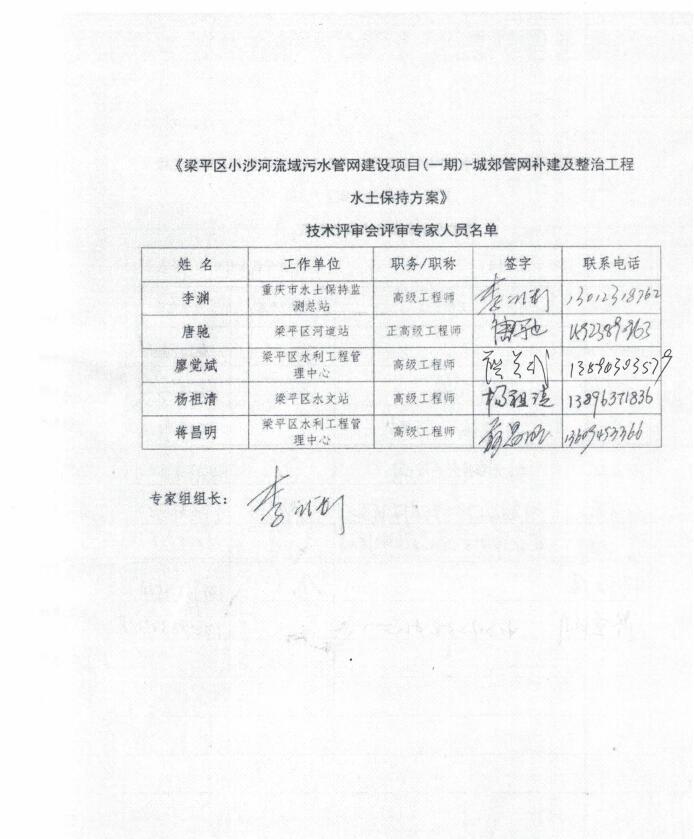 《梁平区小沙河流域污水管网建设项目(一期)-城郊管网补建及整治工程
水土保持方案》
技术评审会评审专家人员名单
姓 名 工作单位 职务/职称 签字 联系电话
李渊 重庆市水土保持监 高级工程师 13012318762
测总站
唐驰 梁平区河道站 正高级工程师 唐驰
廖党斌 梁平区水利工程管 高级工程师 13896303579
理中心
杨祖清 梁平区水文站 高级工程师 杨祖清 13896371836
蒋昌明 梁平区水利工程管 高级工程师 蒋昌明 13609453366
理中心
专家组组长：